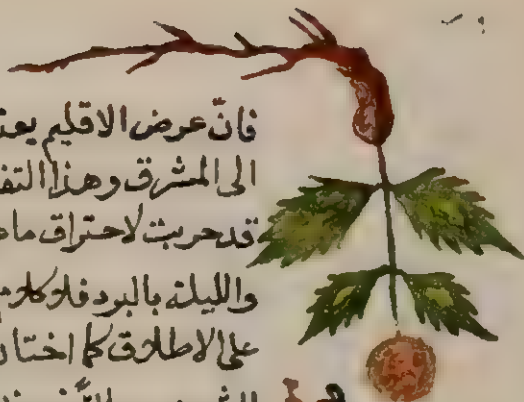 فانّ عرض الاقليم يعت
الى المشرق وهذا التف
قد حربت لاحتراق ما
والليلة بالبرد فلا كلام
على الاطلاق كما اختار